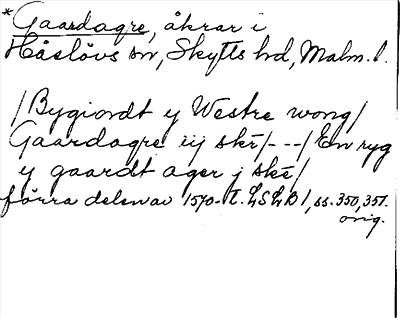 *Gaardagre, åkrar i
Håslövs sn, Skytts hd, Malm. l.
/Bygiordt y Westre wong/
Gaardagre iij ske/---/En ryg
y gaardt ager j ske/
förra delen av 1570-t. LSLB1, ss. 350, 351.
orig.